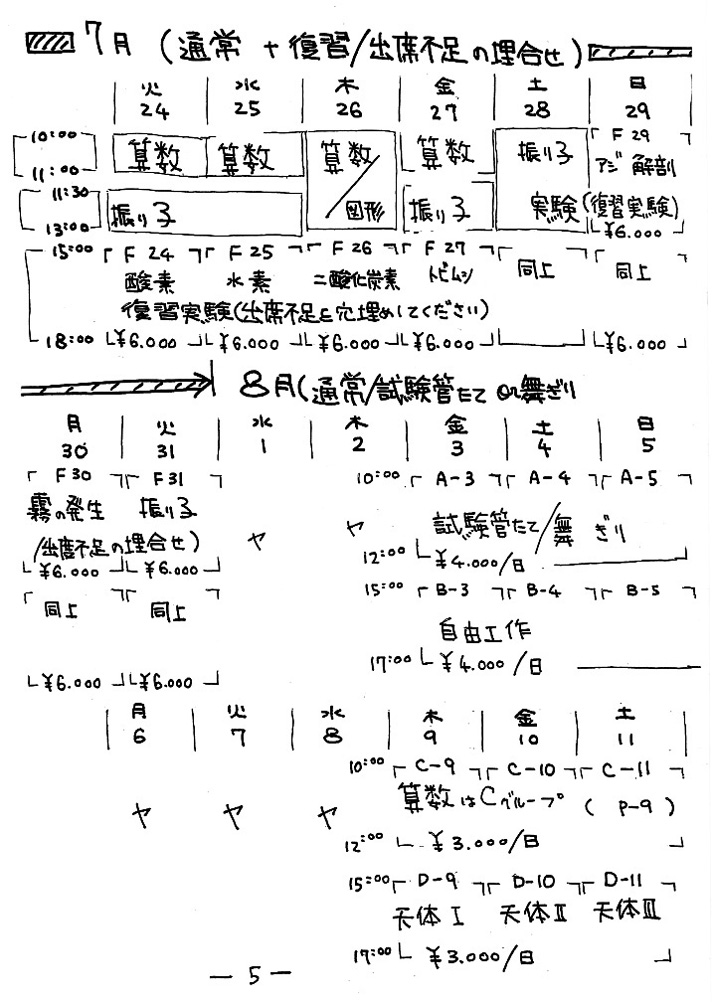 7月 (通常 + 復習/出席不足の埋合せ)
火 水 木 金 土 日
24 25 26 27 28 29
10:00 算数 算数 算数/図形 算数 振り子 F29
11:00 アジ解剖
11:30 振り子 振り子 実験(復習実験)
13:00 ¥6.000
15:00 F24 F25 F26 F27 同上 同上
酸素 水素 二酸化炭素 トビムシ
復習実験(出席不足を穴埋めしてください)
18:00 ¥6.000 ¥6.000 ¥6.000 ¥6.000 ¥6.000
8月(通常/試験管たて or 舞ぎり
月 火 水 木 金 土 日
30 31 1 2 3 4 5
F30 F31 10:00 A-3 A-4 A-5
霧の発生 振り子 ヤ ヤ 試験管たて/舞ぎり
(出席不足の埋合せ) 12:00 ¥4.000/日
¥6.000 ¥6.000 15:00 B-3 B-4 B-5
同上 同上 自由工作
¥6.000 ¥6.000 17:00 ¥4.000/日
月 火 水 木 金 土
6 7 8 9 10 11
10:00 C-9 C-10 C-11
ヤ ヤ ヤ 算数はCグループ (P-9)
12:00 ¥3.000/日
15:00 D-9 D-10 D-11
天体I 天体II 天体III
17:00 ¥3.000/日
— 5 —